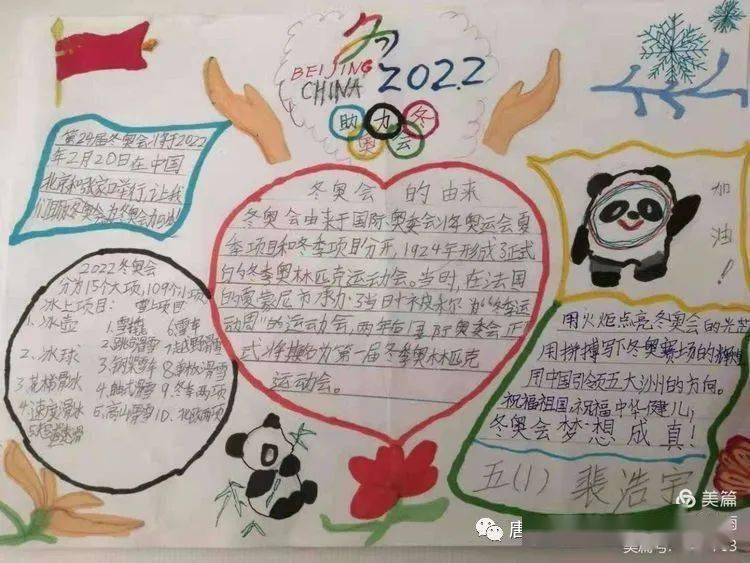 BEIJING
CHINA
2022
助力冬
奥会
第24届冬奥会将于2022
年2月20日在中国
北京和张家口举行,让我
冬奥会的由来
冬奥会由来于国际奥委会将奥运会夏
季项目和冬季项目分开,1924年形成了正式
的冬季奥林匹克运动会。当时,在法国
的夏蒙尼市承办了当时被称为“冬季运
动周”的运动会,两年后国际奥委会正
式将其为第一届冬季奥林匹克
运动会。
加油!
2022冬奥会
分为15个大项,109个小项
冰上项目: 雪上项目
1.冰壶
2.冰球
3.花样滑冰
4.速度滑冰
1.雪橇 6.雪车
2.跳台滑雪 7.越野滑雪
3.钢架雪车 8.单板滑雪
9.冬季两项
5.高山滑雪 10.北欧两项
用火炬点亮冬奥会的光芒
用拼搏写下冬奥赛场的辉煌
用中国引领五大洲的方向。
祝福祖国,祝福中华健儿,
冬奥会梦想成真!
五(1) 裴浩宇
美篇
唐
美篇号: